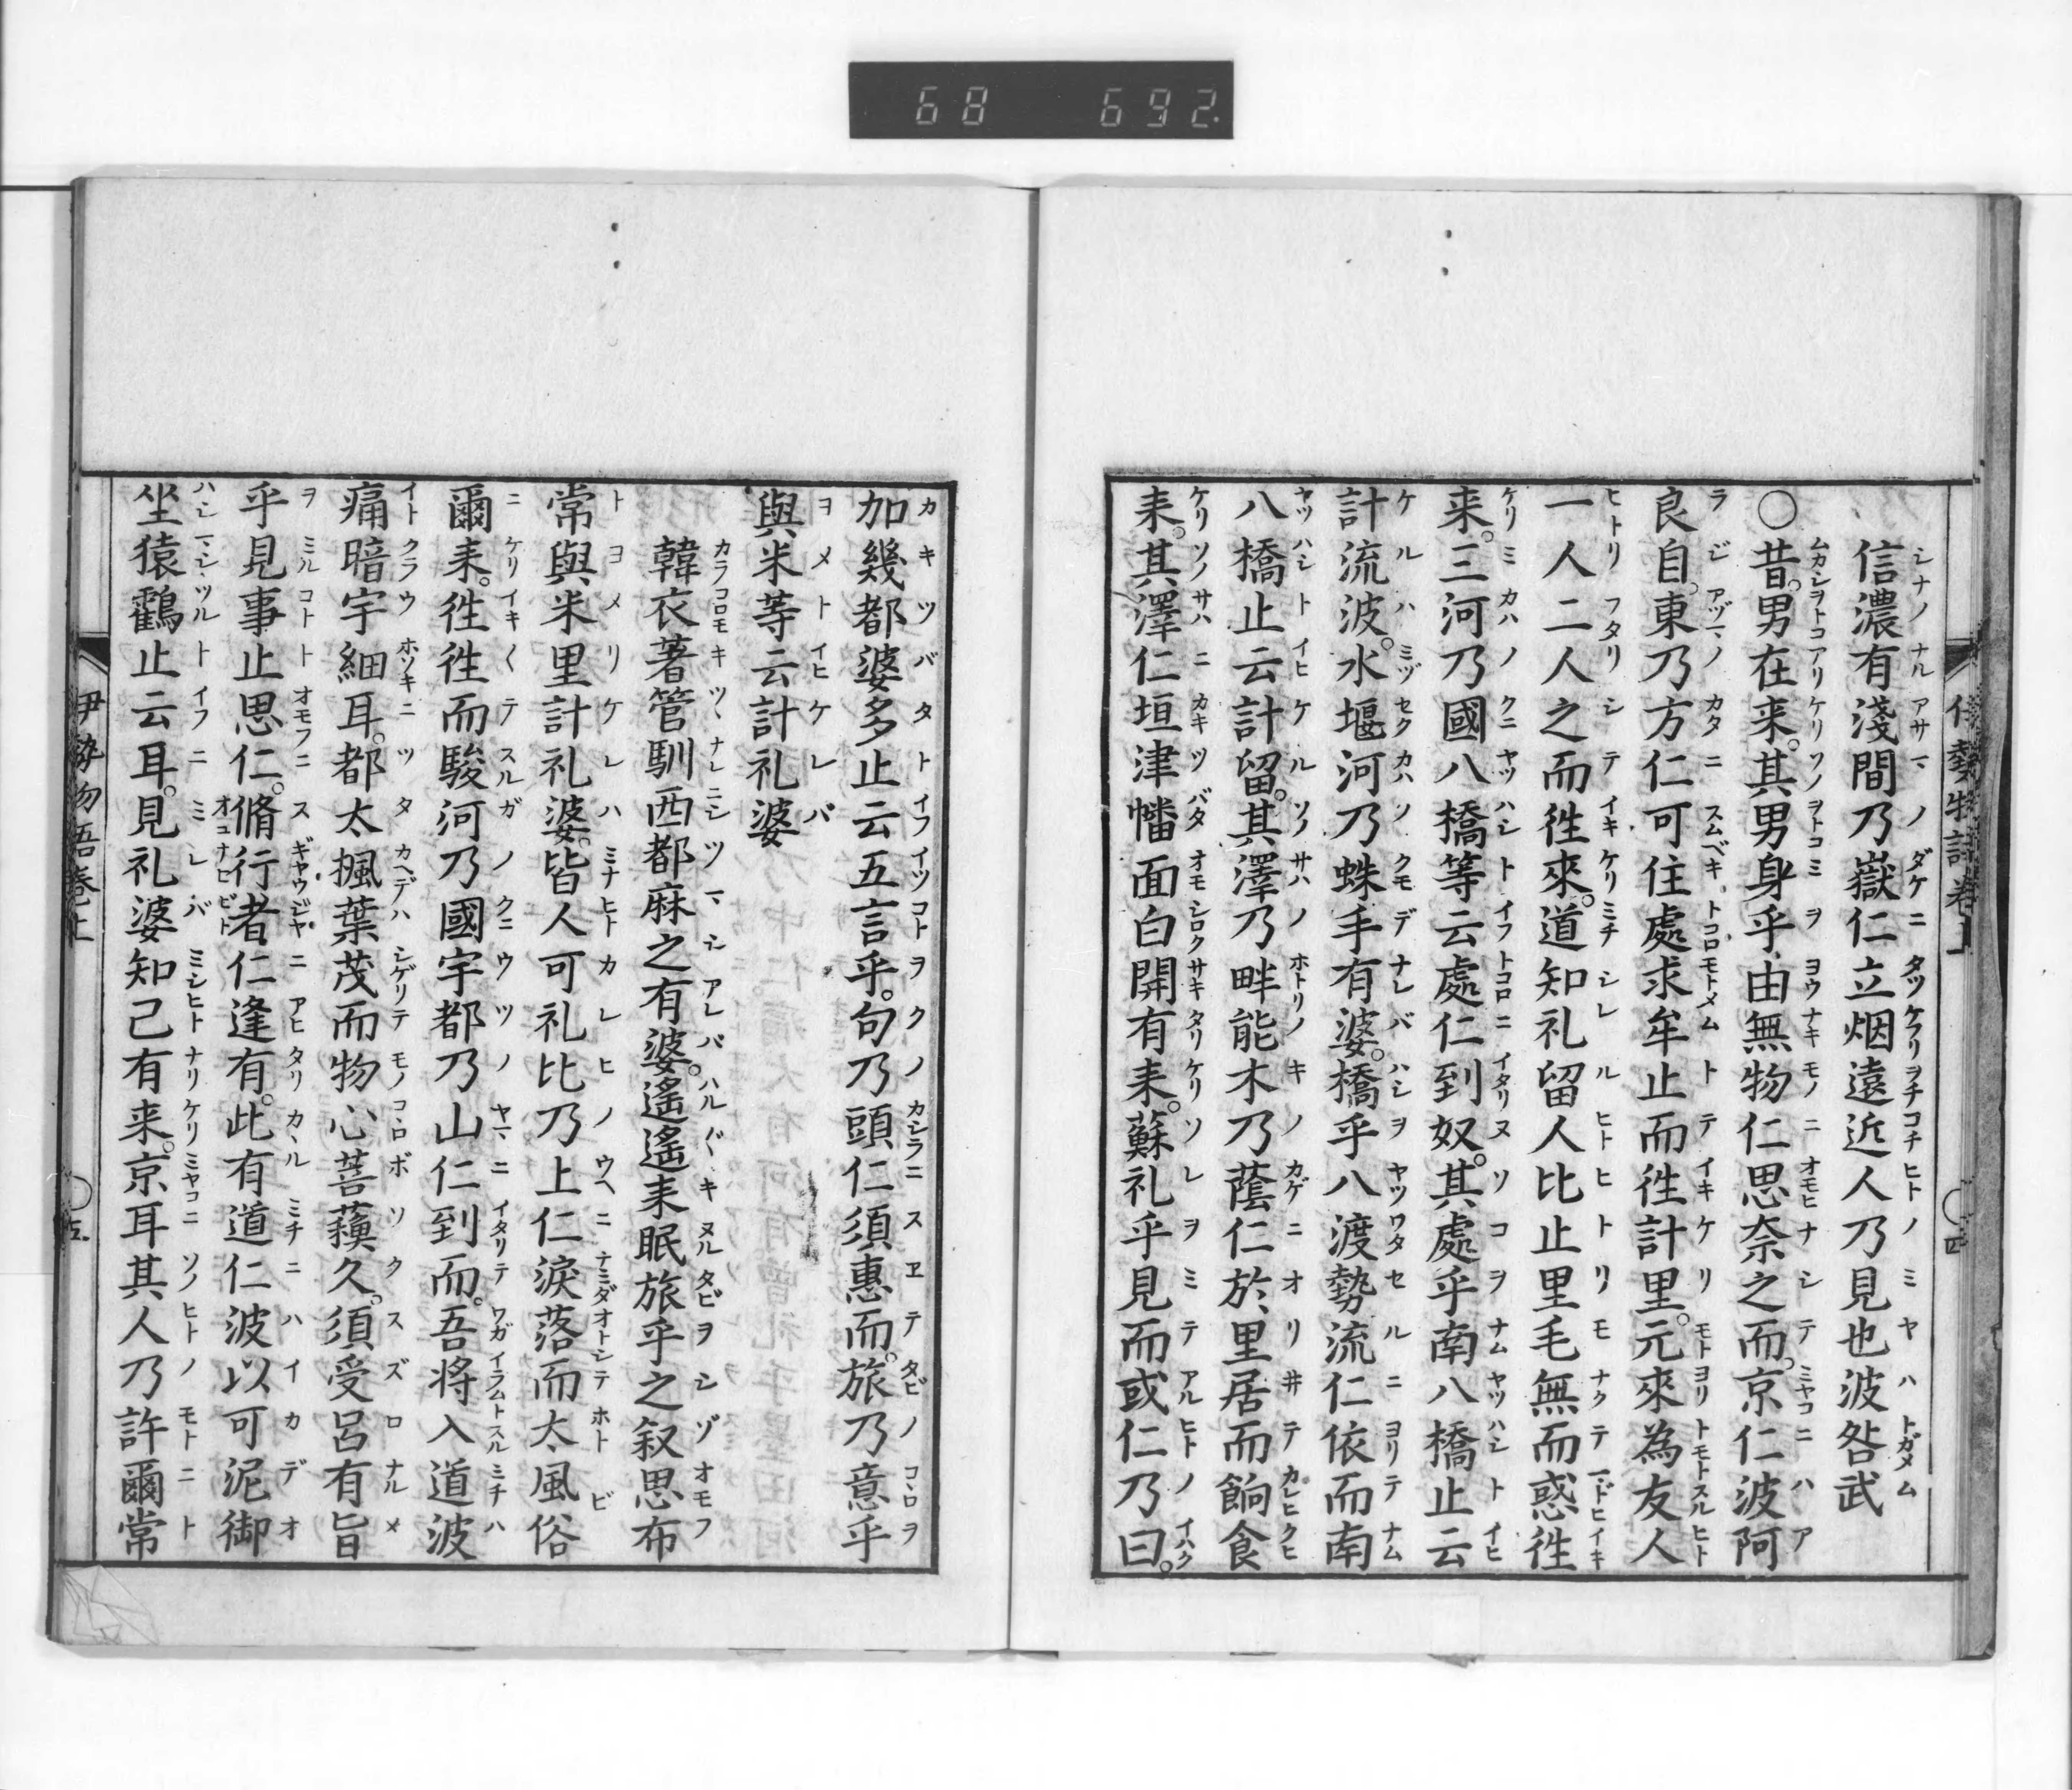 68 692.
信濃有淺間乃嶽仁立烟遠近人乃見也波咎武
○昔。男在来。其男身乎由無物仁思奈之而。京仁波阿
良自。東乃方仁可住處求牟止而徃計里。元來為友人
一人二人之而徃來。道知礼留人比止里毛無而惑徃
来。三河乃國八橋等云處仁到奴。其處乎南八橋止云
計流波。水堰河乃蛛手有婆。橋乎八渡勢流仁依而南
八橋止云計留。其澤乃畔能木乃蔭仁於里居而餉食
耒。其澤仁垣津幡面白開有耒。蘇礼乎見而或仁乃曰。
加幾都婆多止云五言乎。句乃頭仁須惠而。旅乃意乎
與米等云計礼婆
韓衣著管馴西都麻之有婆。遙遙耒眠旅乎之叙思布
常與米里計礼婆。皆人可礼比乃上仁淚落而太風俗
爾耒。徃徃而駿河乃國宇都乃山仁到而。吾将入道波
痛暗宇細耳。都太楓葉茂而物心菩蘓久。須受呂有旨
乎見事止思仁。脩行者仁逢有。此有道仁波以可泥御
坐猿鸖止云耳。見礼婆知己有来。京耳其人乃許爾常